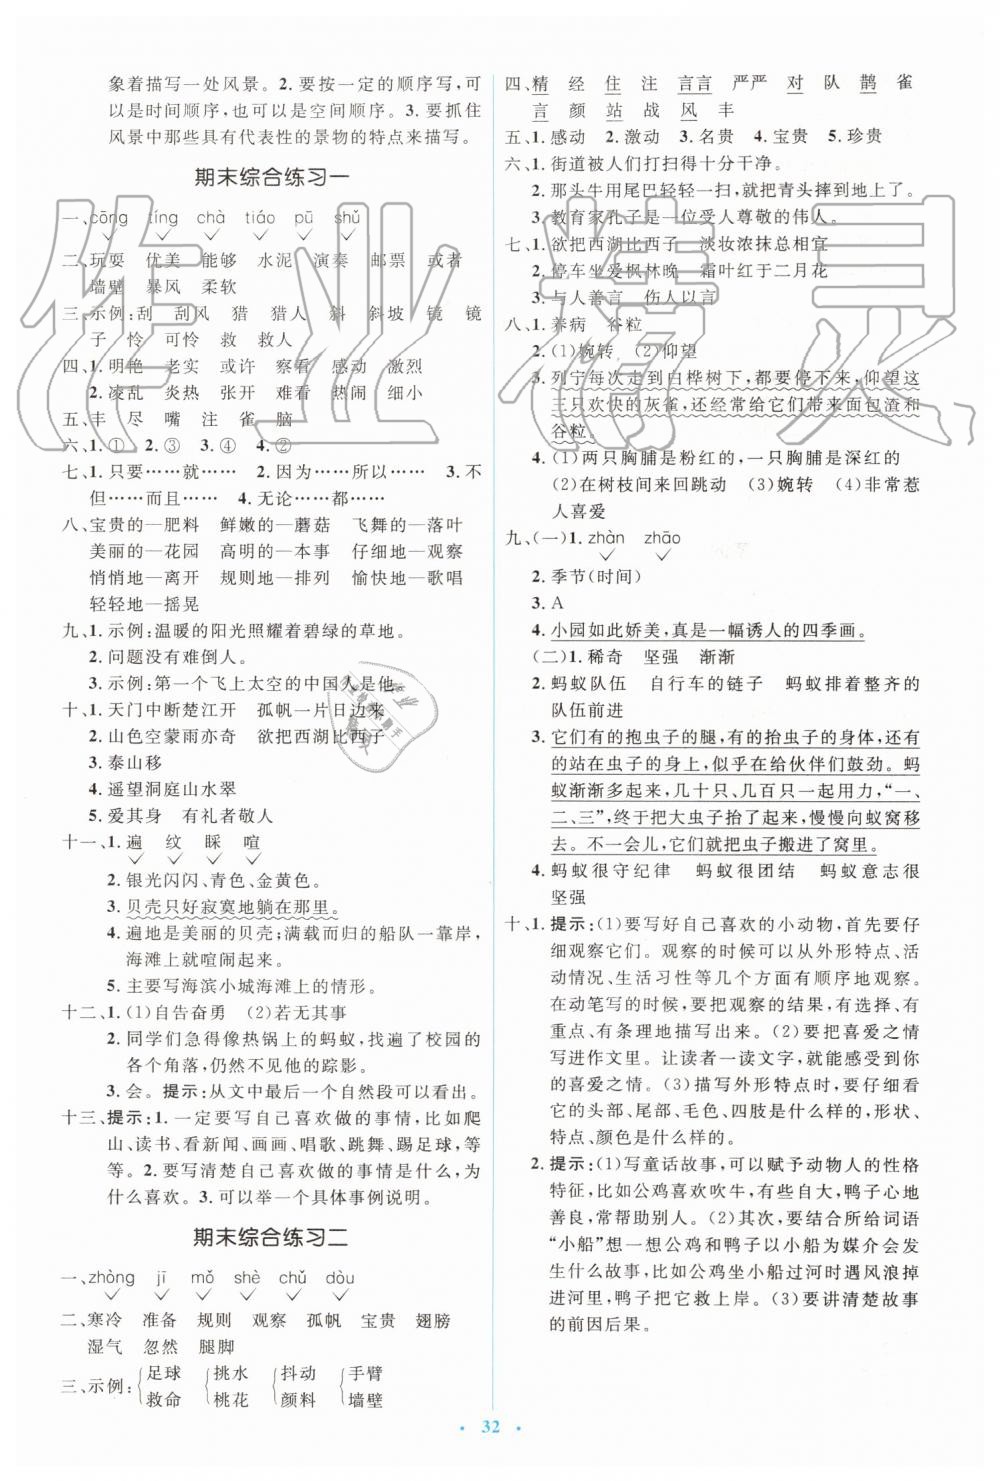 象着描写一处风景。2. 要按一定的顺序写,可
以是时间顺序,也可以是空间顺序。3. 要抓住
风景中那些具有代表性的景物的特点来描写。
期末综合练习一
一、cōng tíng chà tiáo pū shǔ
二、玩耍 优美 能够 水泥 演奏 邮票 或者
墙壁 暴风 柔软
三、示例:刮 刮风 猎 猎人 斜 斜坡 镜 镜
子 怜 可怜 救 救人
四、1. 明艳 老实 或许 察看 感动 激烈
2. 凌乱 炎热 张开 难看 热闹 细小
五、丰 尽 嘴 注 雀 脑
六、1. ① 2. ③ 3. ④ 4. ②
七、1. 只要……就…… 2. 因为……所以…… 3. 不
但……而且…… 4. 无论……都……
八、宝贵的—肥料 鲜嫩的—蘑菇 飞舞的—落叶
美丽的—花园 高明的—本事 仔细地—观察
悄悄地—离开 规则地—排列 愉快地—歌唱
轻轻地—摇晃
九、1. 示例:温暖的阳光照耀着碧绿的草地。
2. 问题没有难倒人。
3. 示例:第一个飞上太空的中国人是他。
十、1. 天门中断楚江开 孤帆一片日边来
2. 山色空蒙雨亦奇 欲把西湖比西子
3. 泰山移
4. 遥望洞庭山水翠
5. 爱其身 有礼者敬人
十一、1. 遍 纹 睬 喧
2. 银光闪闪、青色、金黄色。
3. 贝壳只好寂寞地躺在那里。
4. 遍地是美丽的贝壳;满载而归的船队一靠岸,
海滩上就喧闹起来。
5. 主要写海滨小城海滩上的情形。
十二、1. (1)自告奋勇 (2)若无其事
2. 同学们急得像热锅上的蚂蚁,找遍了校园的
各个角落,仍然不见他的踪影。
3. 会。提示:从文中最后一个自然段可以看出。
十三、提示:1. 一定要写自己喜欢做的事情,比如爬
山、读书、看新闻、画画、唱歌、跳舞、踢足球,等
等。2. 要写清楚自己喜欢做的事情是什么,为
什么喜欢。3. 可以举一个具体事例说明。
期末综合练习二
一、zhòng jī mǒ shè chǔ dòu
二、寒冷 准备 规则 观察 孤帆 宝贵 翅膀
湿气 忽然 腿脚
三、示例:{足球 {挑水 {抖动 {手臂
救命 桃花 颜料 墙壁
四、精 经 住 注 言言 严严 对 队 鹊 雀
言 颜 站 战 风 丰
五、1. 感动 2. 激动 3. 名贵 4. 宝贵 5. 珍贵
六、1. 街道被人们打扫得十分干净。
2. 那头牛用尾巴轻轻一扫,就把青头摔到地上了。
3. 教育家孔子是一位受人尊敬的伟人。
七、1. 欲把西湖比西子 淡妆浓抹总相宜
2. 停车坐爱枫林晚 霜叶红于二月花
3. 与人善言 伤人以言
八、1. 养病 谷粒
2. (1)婉转 (2)仰望
3. 列宁每次走到白桦树下,都要停下来,仰望这
三只欢快的灰雀,还经常给它们带来面包渣和
谷粒。
4. (1)两只胸脯是粉红的,一只胸脯是深红的
(2)在树枝间来回跳动 (3)婉转 (4)非常惹
人喜爱
九、(一)1. zhàn zhāo
2. 季节(时间)
3. A
4. 小园如此娇美,真是一幅诱人的四季画。
(二)1. 稀奇 坚强 渐渐
2. 蚂蚁队伍 自行车的链子 蚂蚁排着整齐的
队伍前进
3. 它们有的抱虫子的腿,有的抬虫子的身体,还
有的站在虫子的身上,似乎在给伙伴们鼓劲。蚂
蚁渐渐多起来,几十只、几百只一起用力,“一、
二、三”,终于把大虫子抬了起来,慢慢向蚁窝移
去。不一会儿,它们就把虫子搬进了窝里。
4. 蚂蚁很守纪律 蚂蚁很团结 蚂蚁意志很
坚强
十、1. 提示:(1)要写好自己喜欢的小动物,首先要仔
细观察它们。观察的时候可以从外形特点、
活动情况、生活习性等几个方面有顺序地观察。
在动笔写的时候,要把观察的结果,有选择、有
重点、有条理地描写出来。(2)要把喜爱之情
写进作文里。让读者一读文字,就能感受到你
的喜爱之情。(3)描写外形特点时,要仔细看
它的头部、尾部、毛色、四肢是什么样的,形状、
特点、颜色是什么样的。
2. 提示:(1)写童话故事,可以赋予动物人的性格
特征,比如公鸡喜欢吹牛,有些自大,鸭子心地
善良,常帮助别人。(2)其次,要结合所给词语
“小船”想一想公鸡和鸭子以小船为媒介会发
生什么故事,比如公鸡坐小船过河时遇风浪掉
进河里,鸭子把它救上岸。(3)要讲清楚故事
的前因后果。
32
作业精灵